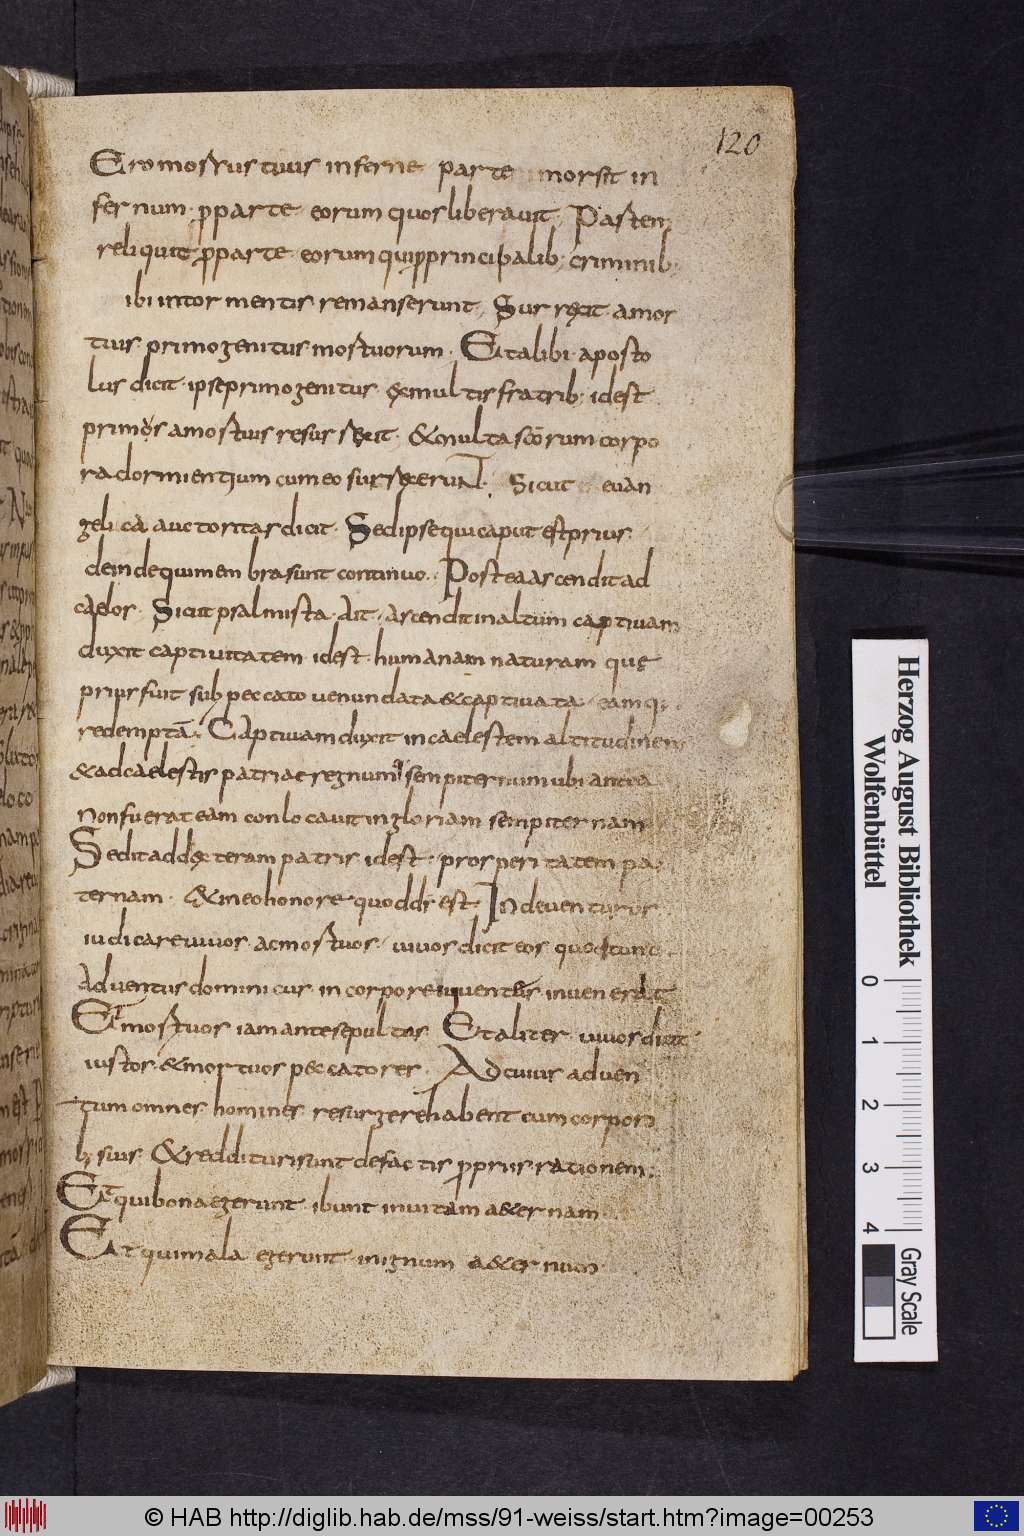 120
Ero morsus tuus inferne parte morsit in
fernum · p parte eorum quos liberauit, Partem
reliquit p parte eorum qui p principalib; criminib;
ibi in tormentis remanserunt, Surrexit amor
tuis primogenitus mortuorum · Et alibi aposto
lus dicit · ipse primogenitus · & multis fratrib; idest
primus a mortuis resurrexit · & multa scōrum corpo
ra dormientium cum eo surrexerunt · Sicut euan
gelica auctoritas dicit · Sed ipse qui caput est prius
deinde qui membra sunt continuo · Postea ascendit ad
caelos · Sicut psalmista Ait · ascendit in altum captiuam
duxit captiuitatem idest · humanam naturam quę
prius fuit sub peccato uenundata & captiuata · eamq;
redemptā · Captiuam duxit in caelestem altitudinem
& ad caelestis patriae regnum sempiternum ubi antea
non fuerat eam conlocauit in gloriam sempiternam
Sedit ad dexteram patris idest · prosperitatem pa
ternam · & in eo honore quod dr̄ est · Inde uenturus
iudicare uiuos ac mortuos · uiuos dicit eos quos tunc
Aduentus dominicus in corpore uiuentes inuenerit
Et mortuos iam ante sepultos · Et aliter uiuos dicit
iustos · & mortuos peccatores · Ad cuius aduen
tum omnes homines resurgere habent cum corpori
b; suis · & reddituri sunt de factis propriis rationem ·
Et qui bona egerunt ibunt in uitam aeternam
Et qui mala egerunt in ignum aeternum ·
Herzog August Bibliothek
Wolfenbüttel
0 1 2 3 4
Gray Scale
© HAB http://diglib.hab.de/mss/91-weiss/start.htm?image=00253